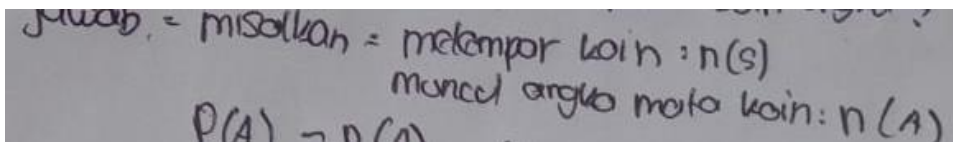 Jawab : misalkan = melempar koin : n(s)
muncul angka mata koin : n(A)
P(A) = n(A)